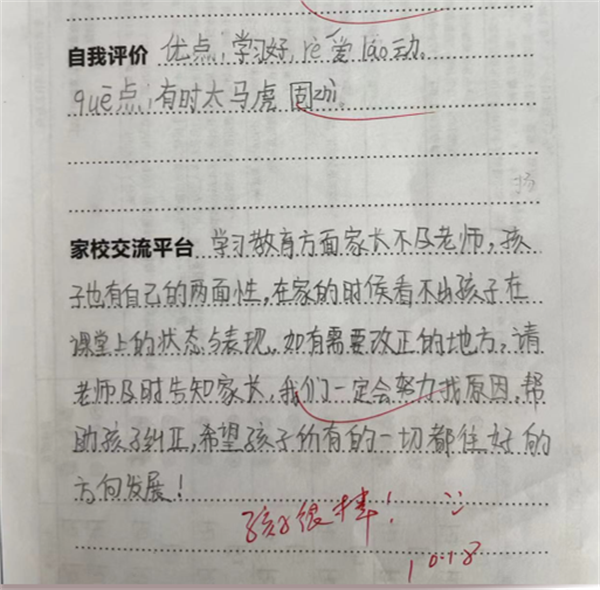 自我评价 优点:学习好,rè爱láo动。
quē点:有时太马虎 固zhí。
扬
家校交流平台 学习教育方面家长不及老师,孩
子也有自己的两面性,在家的时候看不出孩子在
课堂上的状态与表现。如有需要改正的地方,请
老师及时告知家长,我们一定会努力找原因,帮
助孩子纠正,希望孩子所有的一切都往好的
方向发展!
孩子很棒!
10.18